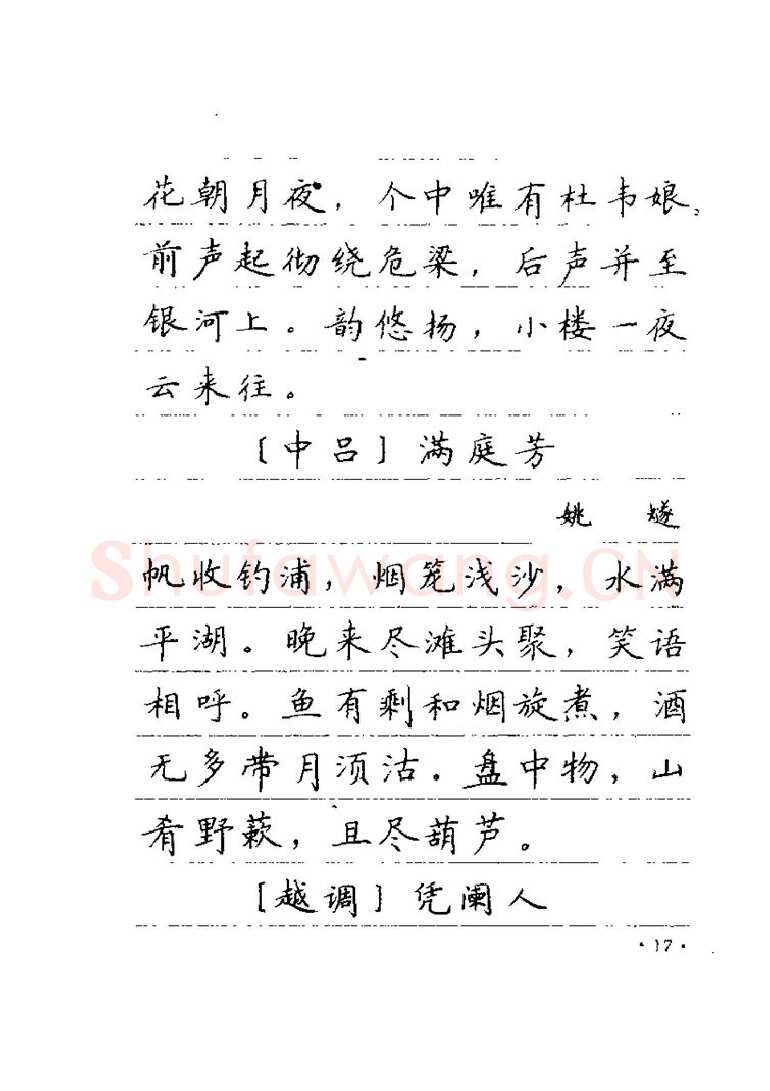 花朝月夜，个中唯有杜韦娘。
前声起彻绕危梁，后声并至
银河上。韵悠扬，小楼一夜
云来往。
［中吕］满庭芳
姚 燧
帆收钓浦，烟笼浅沙，水满
平湖。晚来尽滩头聚，笑语
相呼。鱼有剩和烟旋煮，酒
无多带月须沽。盘中物，山
肴野蔌，且尽葫芦。
［越调］凭阑人
·17·
Shufawang.CN